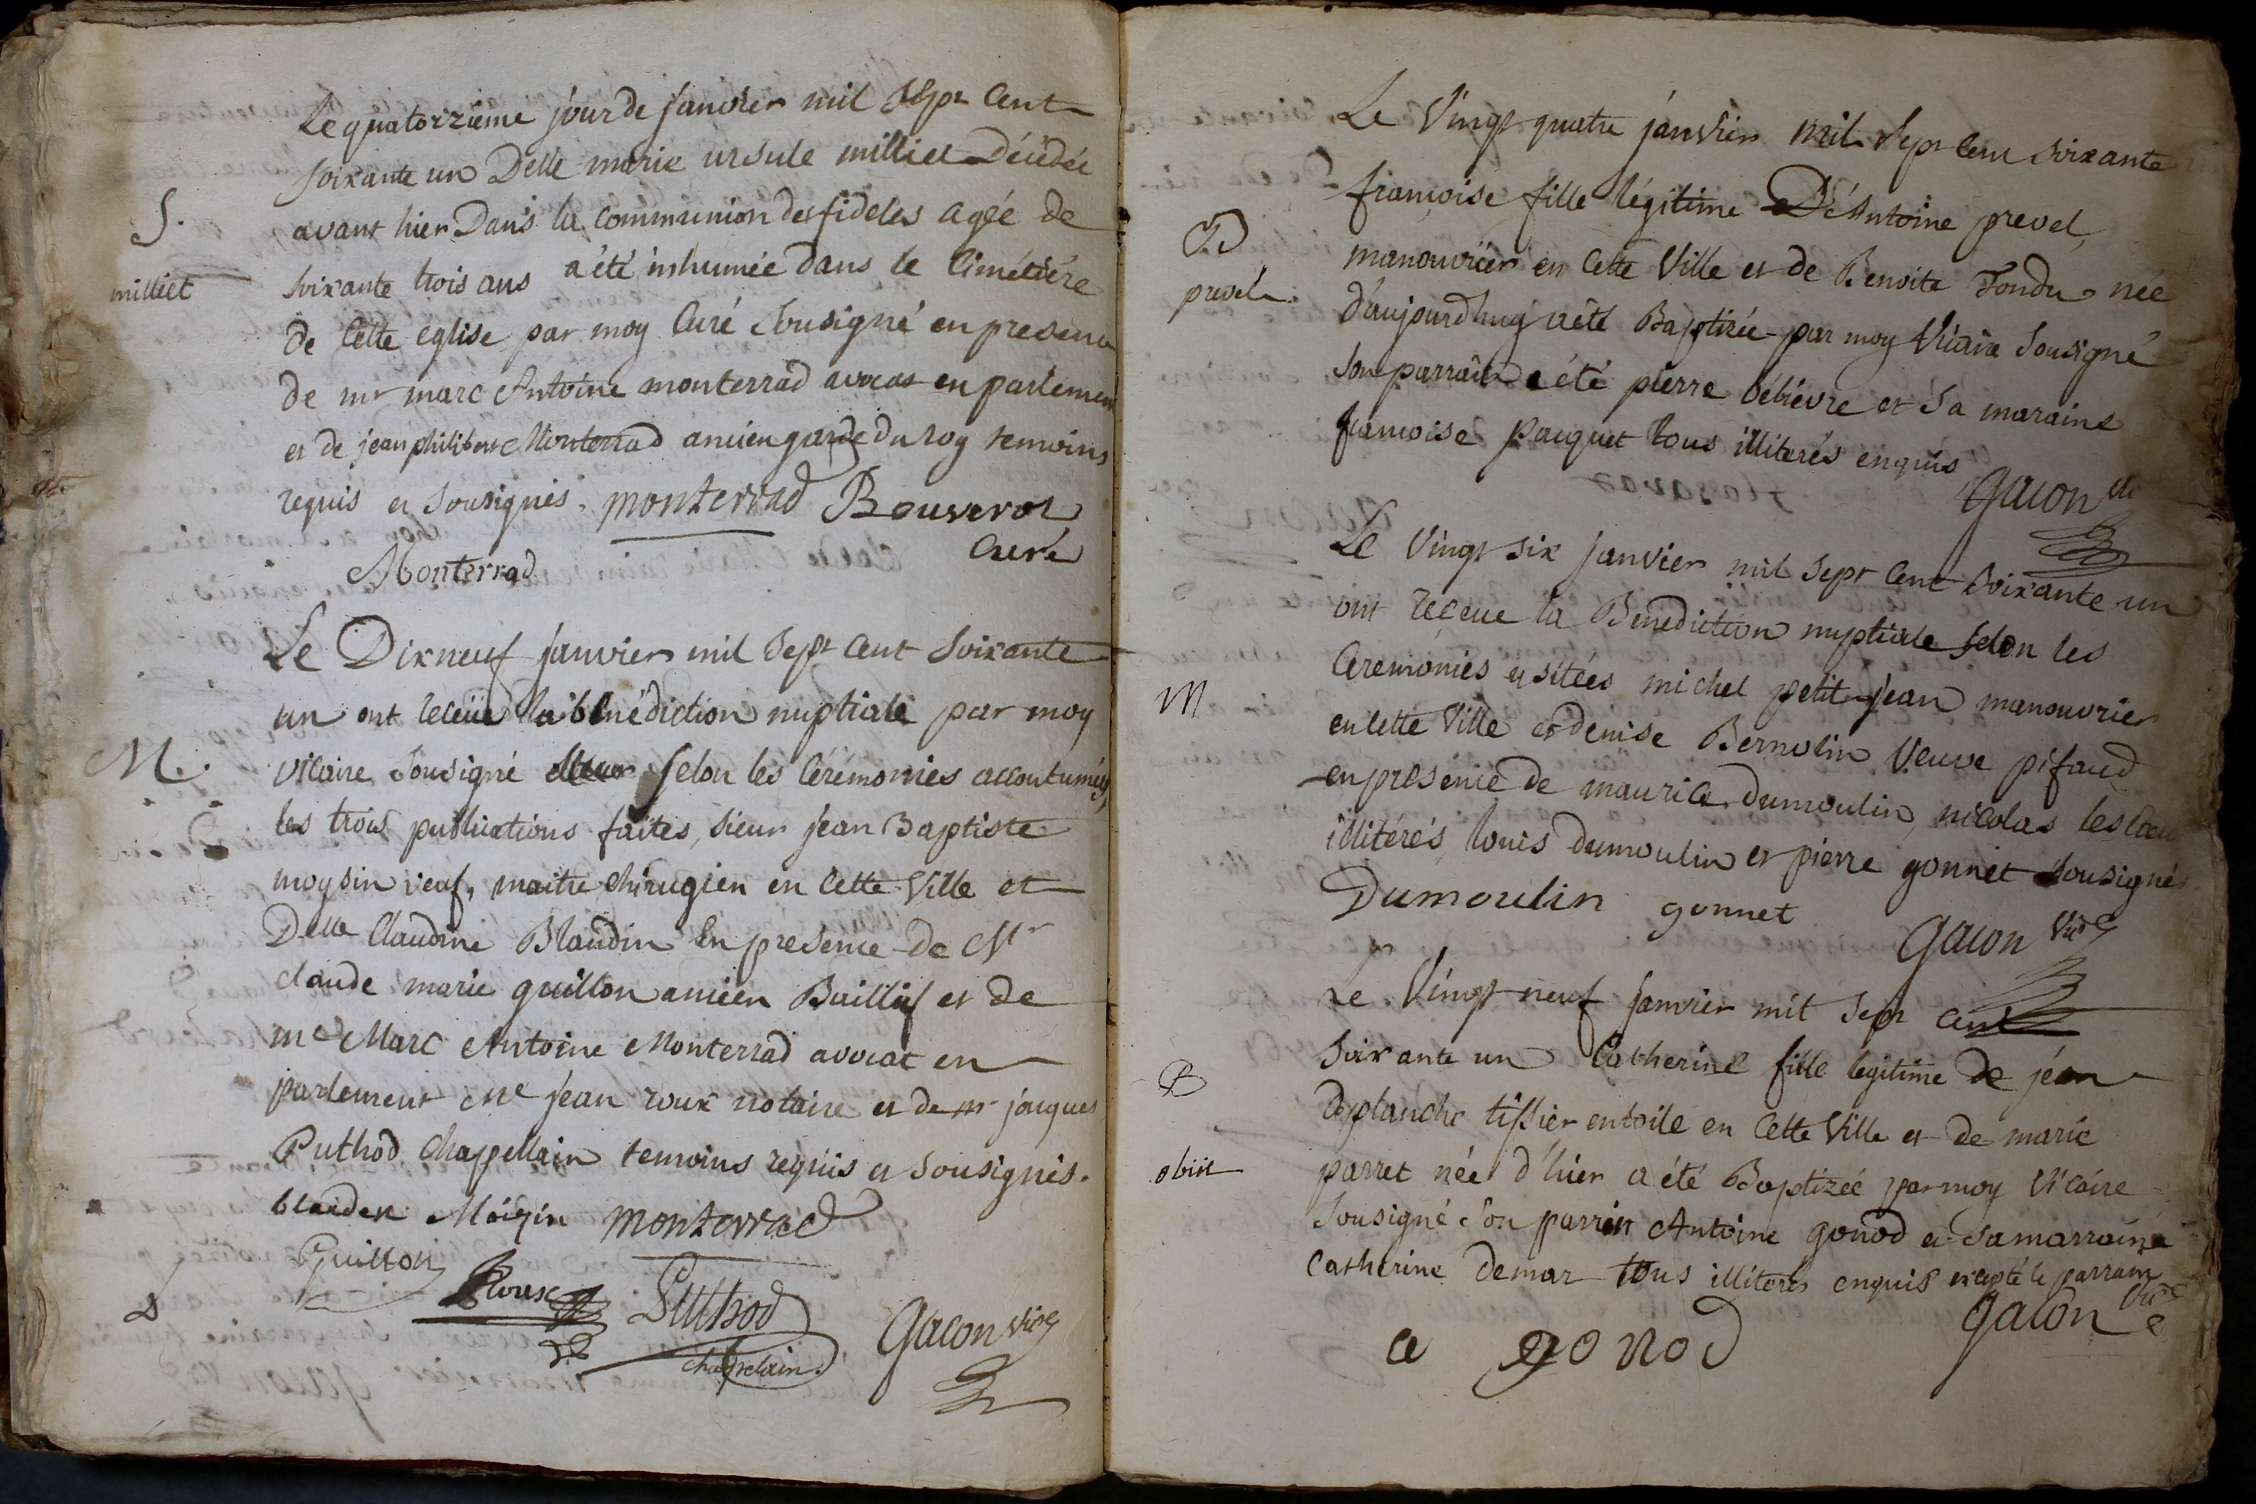 Le quatorziéme jour de janvier mil sept cent
soixante un Delle marie ursule milliet décédée
S.
avant hier Dans la communion des fideles agée de
milliet
soixante trois ans a été inhumée dans le Cimétiére
de Cette eglise par moy Curé Sousigné en presence
de mr marc Antoine monterrad avocat en parlement
et de jean philibert Monterrad ancien garde du roy temoins
requis et Sousignés. monterrad Bouverot
Curé
Monterrad
Le Dixneuf janvier mil Sept Cent Soixante
un ont receüe la bénédiction nuptiale par moy
M.
vicaire Sousigné selon les Cérémonies accoutumées,
les trois publications faites, sieur jean Baptiste
moysin veuf, maitre chirugien en Cette Ville et
Delle Claudine Blandin En presence de Mr
claude marie guillon ancien Baillif et de
me Marc Antoine Monterrad avocat en
parlement Me jean roux notaire et de mr jacques
Puthod Chappellain temoins requis et Sousignés.
blanden Moizin monterrad
Guillon
Roux Puthod
chappelain. Gacon vicre
Le Vingt quatre janvier mil Sept Cent Soixante
françoise fille légitime D'Antoine prevel,
B
manouvrier en Cette Ville et de Benoite Tondu née
prevel
d'aujourdhuy a été Baptizée par moy Vicaire Sousigné
Son parrain a été pierre débiévre et Sa maraine
francoise pauquet tous illiterés enquis
Gacon
Le Vingt Six Janvier mil Sept Cent Soixante un
ont receue la Benediction nuptiale selon les
M
Ceremonies usitées michel petit-jean manouvrier
en Cette Ville et denise Bernolin Veuve pifaud
en présence de maurice dumoulin, nicolas
illitérés, louis dumoulin et pierre gonnet Sousignés
Dumoulin gonnet
Gacon Vicre
Le Vingt neuf janvier mil Sept Cent
Soixante un Catherine fille légitime de jean
B
desplanche tissier en toile en Cette Ville et de marie
obiit
parret née d'hier a été Baptizée par moy Vicaire
Sousigné Son parrin Antoine gonod et Sa marraine
Catherine demar tous illiterés enquis excepté le parrain
Gacon Vicre
a gonod